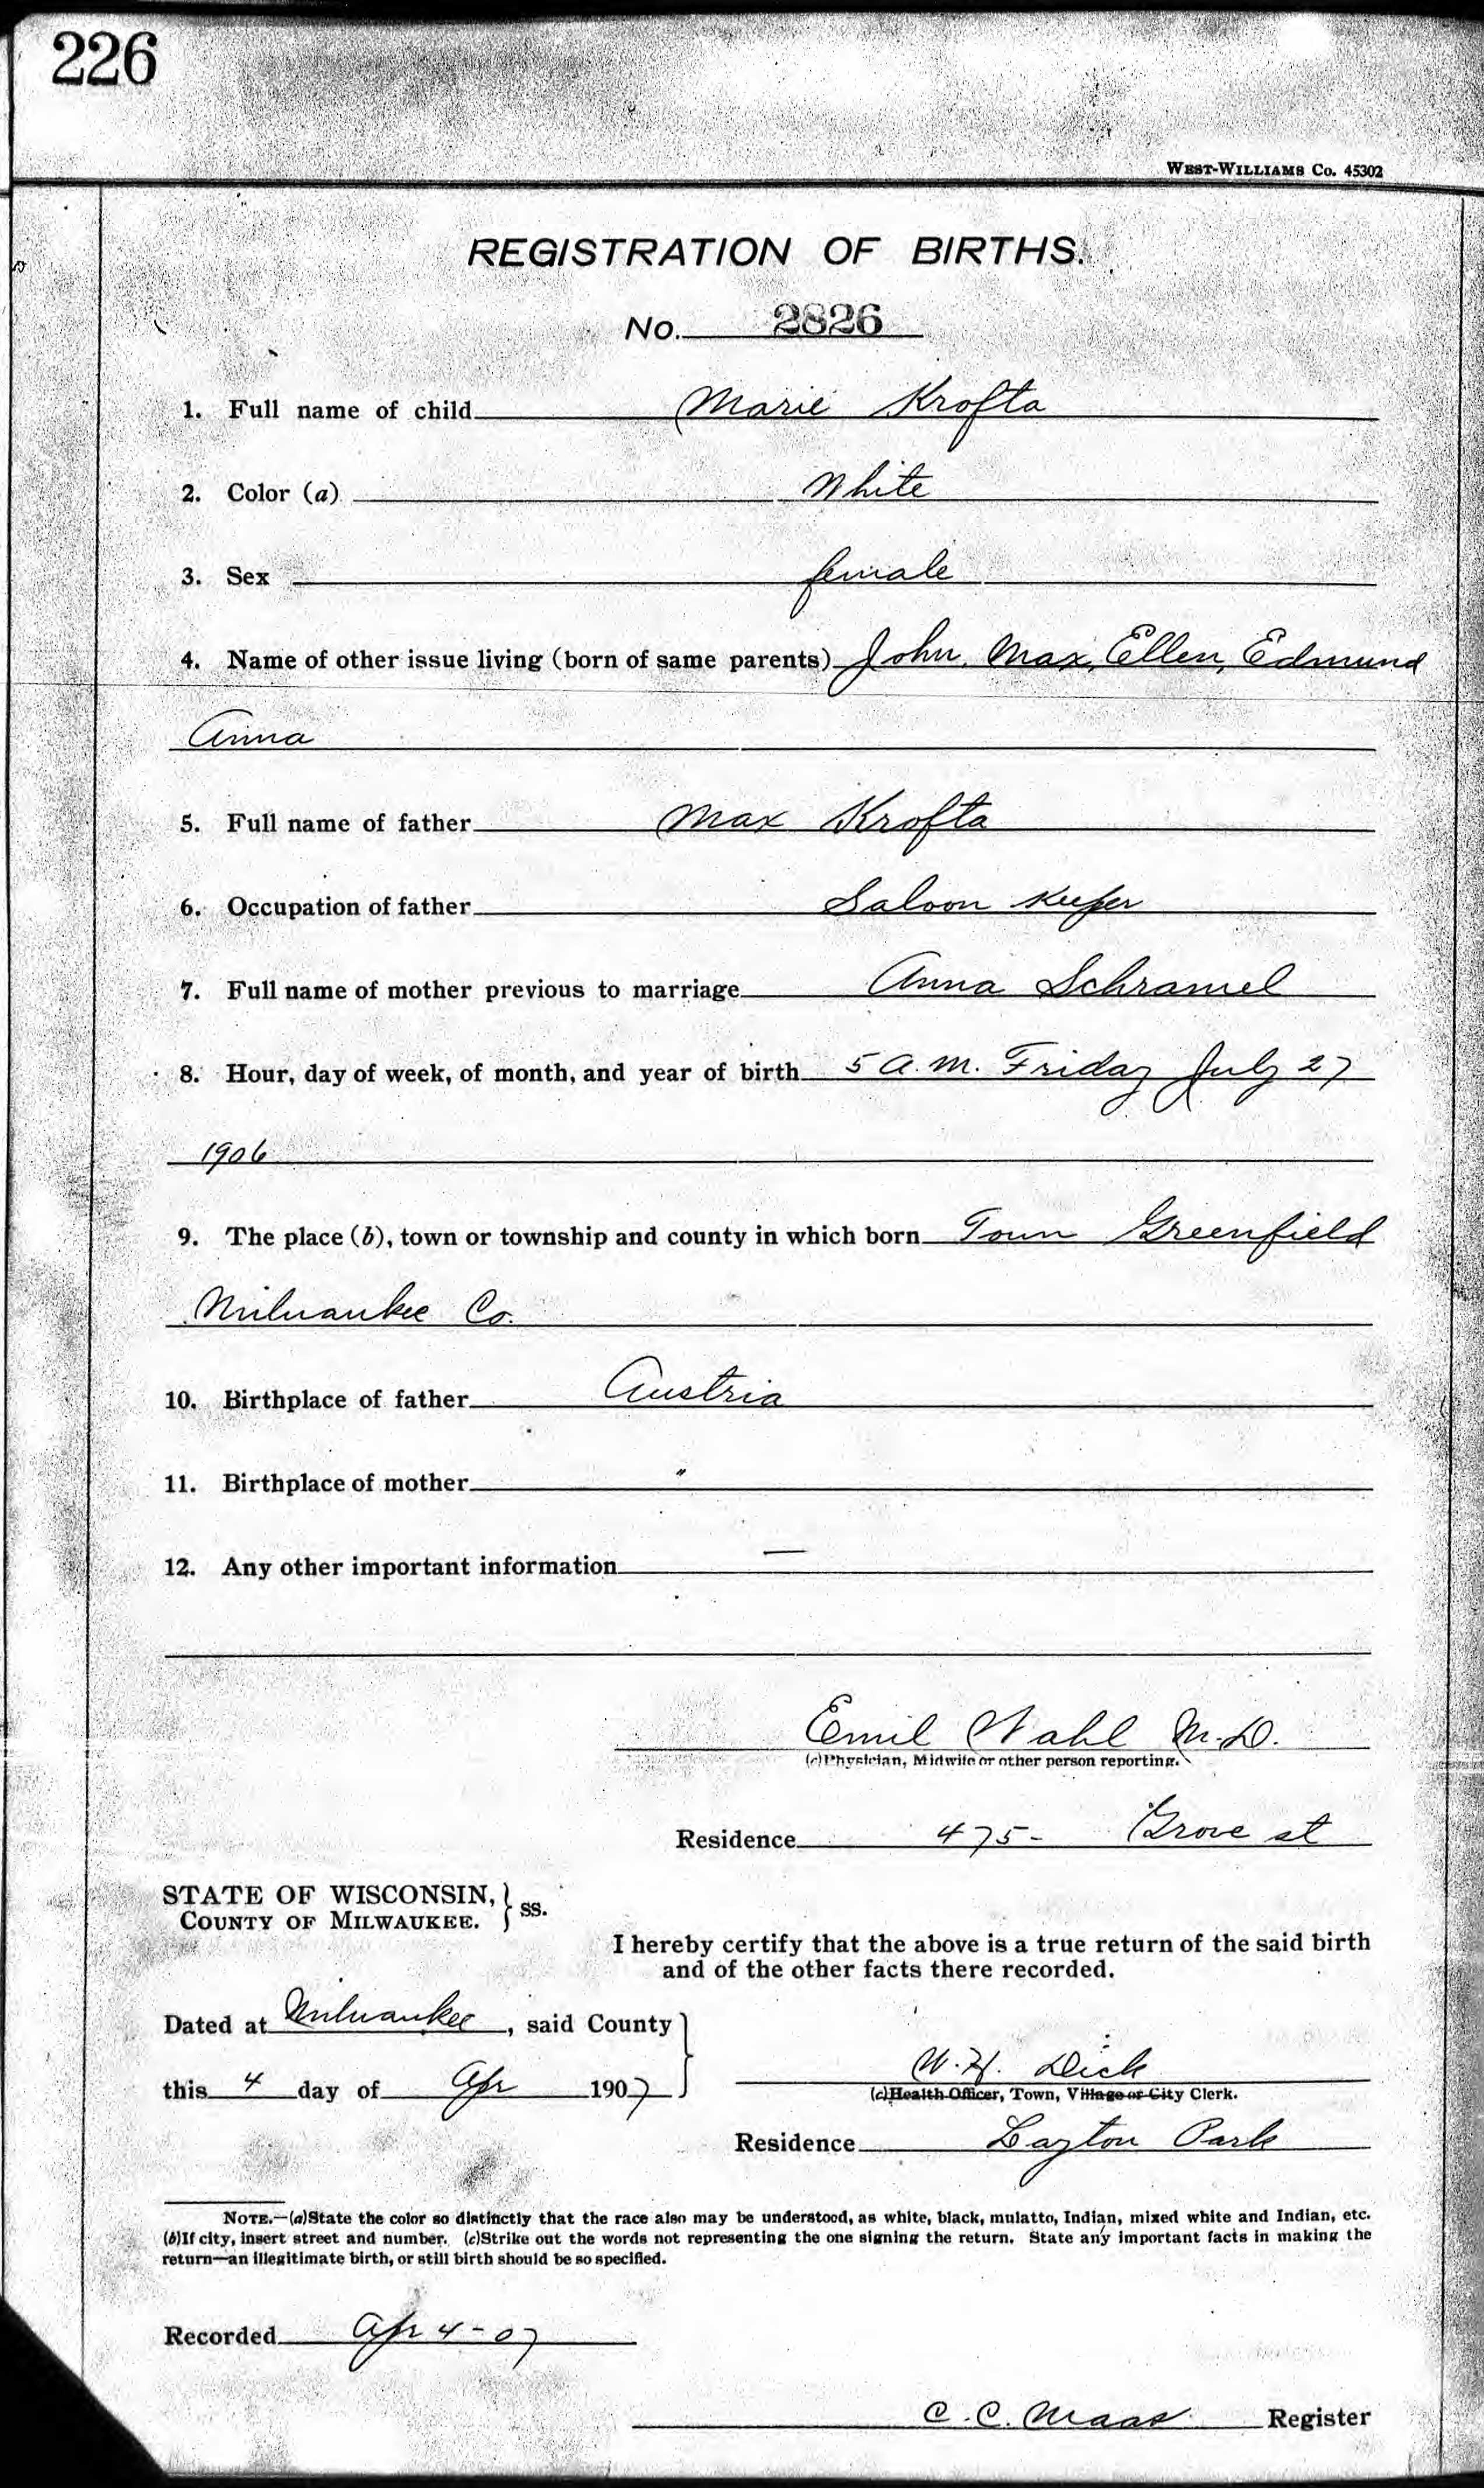 226
WEST-WILLIAMS CO. 45302
REGISTRATION OF BIRTHS.
No. 2826
1. Full name of child Marie Krofta
2. Color (a) White
3. Sex female
4. Name of other issue living (born of same parents) John, Max, Ellen, Edmund
Anna
5. Full name of father Max Krofta
6. Occupation of father Saloon Keeper
7. Full name of mother previous to marriage Anna Schramel
8. Hour, day of week, of month, and year of birth 5 A.M. Friday July 27
1906
9. The place (b), town or township and county in which born Town Greenfield
Milwaukee Co.
10. Birthplace of father Austria
11. Birthplace of mother "
12. Any other important information —
Emil Wahl M.D.
(c)Physician, Midwife or other person reporting.
Residence 475- Grove st
STATE OF WISCONSIN, } ss.
COUNTY OF MILWAUKEE.
I hereby certify that the above is a true return of the said birth
and of the other facts there recorded.
Dated at Milwaukee, said County
this 4 day of Apr 1907
W.H. Dick
(c)Health Officer, Town, Village or City Clerk.
Residence Layton Park
NOTE.—(a)State the color so distinctly that the race also may be understood, as white, black, mulatto, Indian, mixed white and Indian, etc.
(b)If city, insert street and number. (c)Strike out the words not representing the one signing the return. State any important facts in making the
return—an illegitimate birth, or still birth should be so specified.
Recorded Apr 4-07
C.C. Maas Register